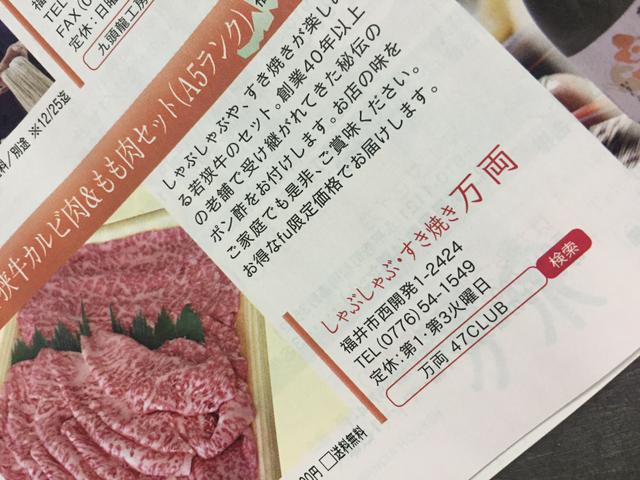 福
TEL
FAX(0
定休:日曜
九頭龍工房
料/別途 ※12/25迄
狭牛カルビ肉&もも肉セット(A5ランク)
しゃぶしゃぶや、すき焼きが楽し
る若狭牛のセット。創業40年以上
の老舗で受け継がれてきた秘伝の
ポン酢をお付けします。お店の味を
ご家庭でも是非、ご賞味ください。
お得なfu限定価格でお届けします。
しゃぶしゃぶ・すき焼き 万両
福井市西開発1-2424
TEL(0776)54-1549
定休:第1・第3火曜日
万両 47CLUB 検索
00円 □送料無料